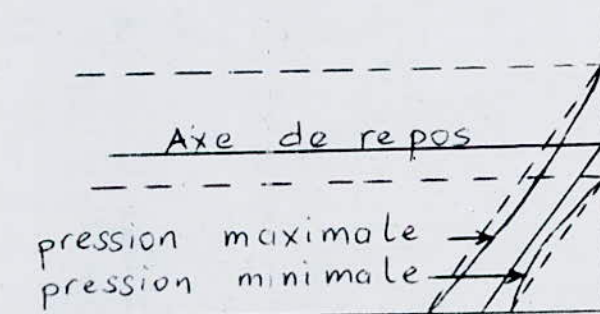 Axe de repos
pression maximale
pression minimale